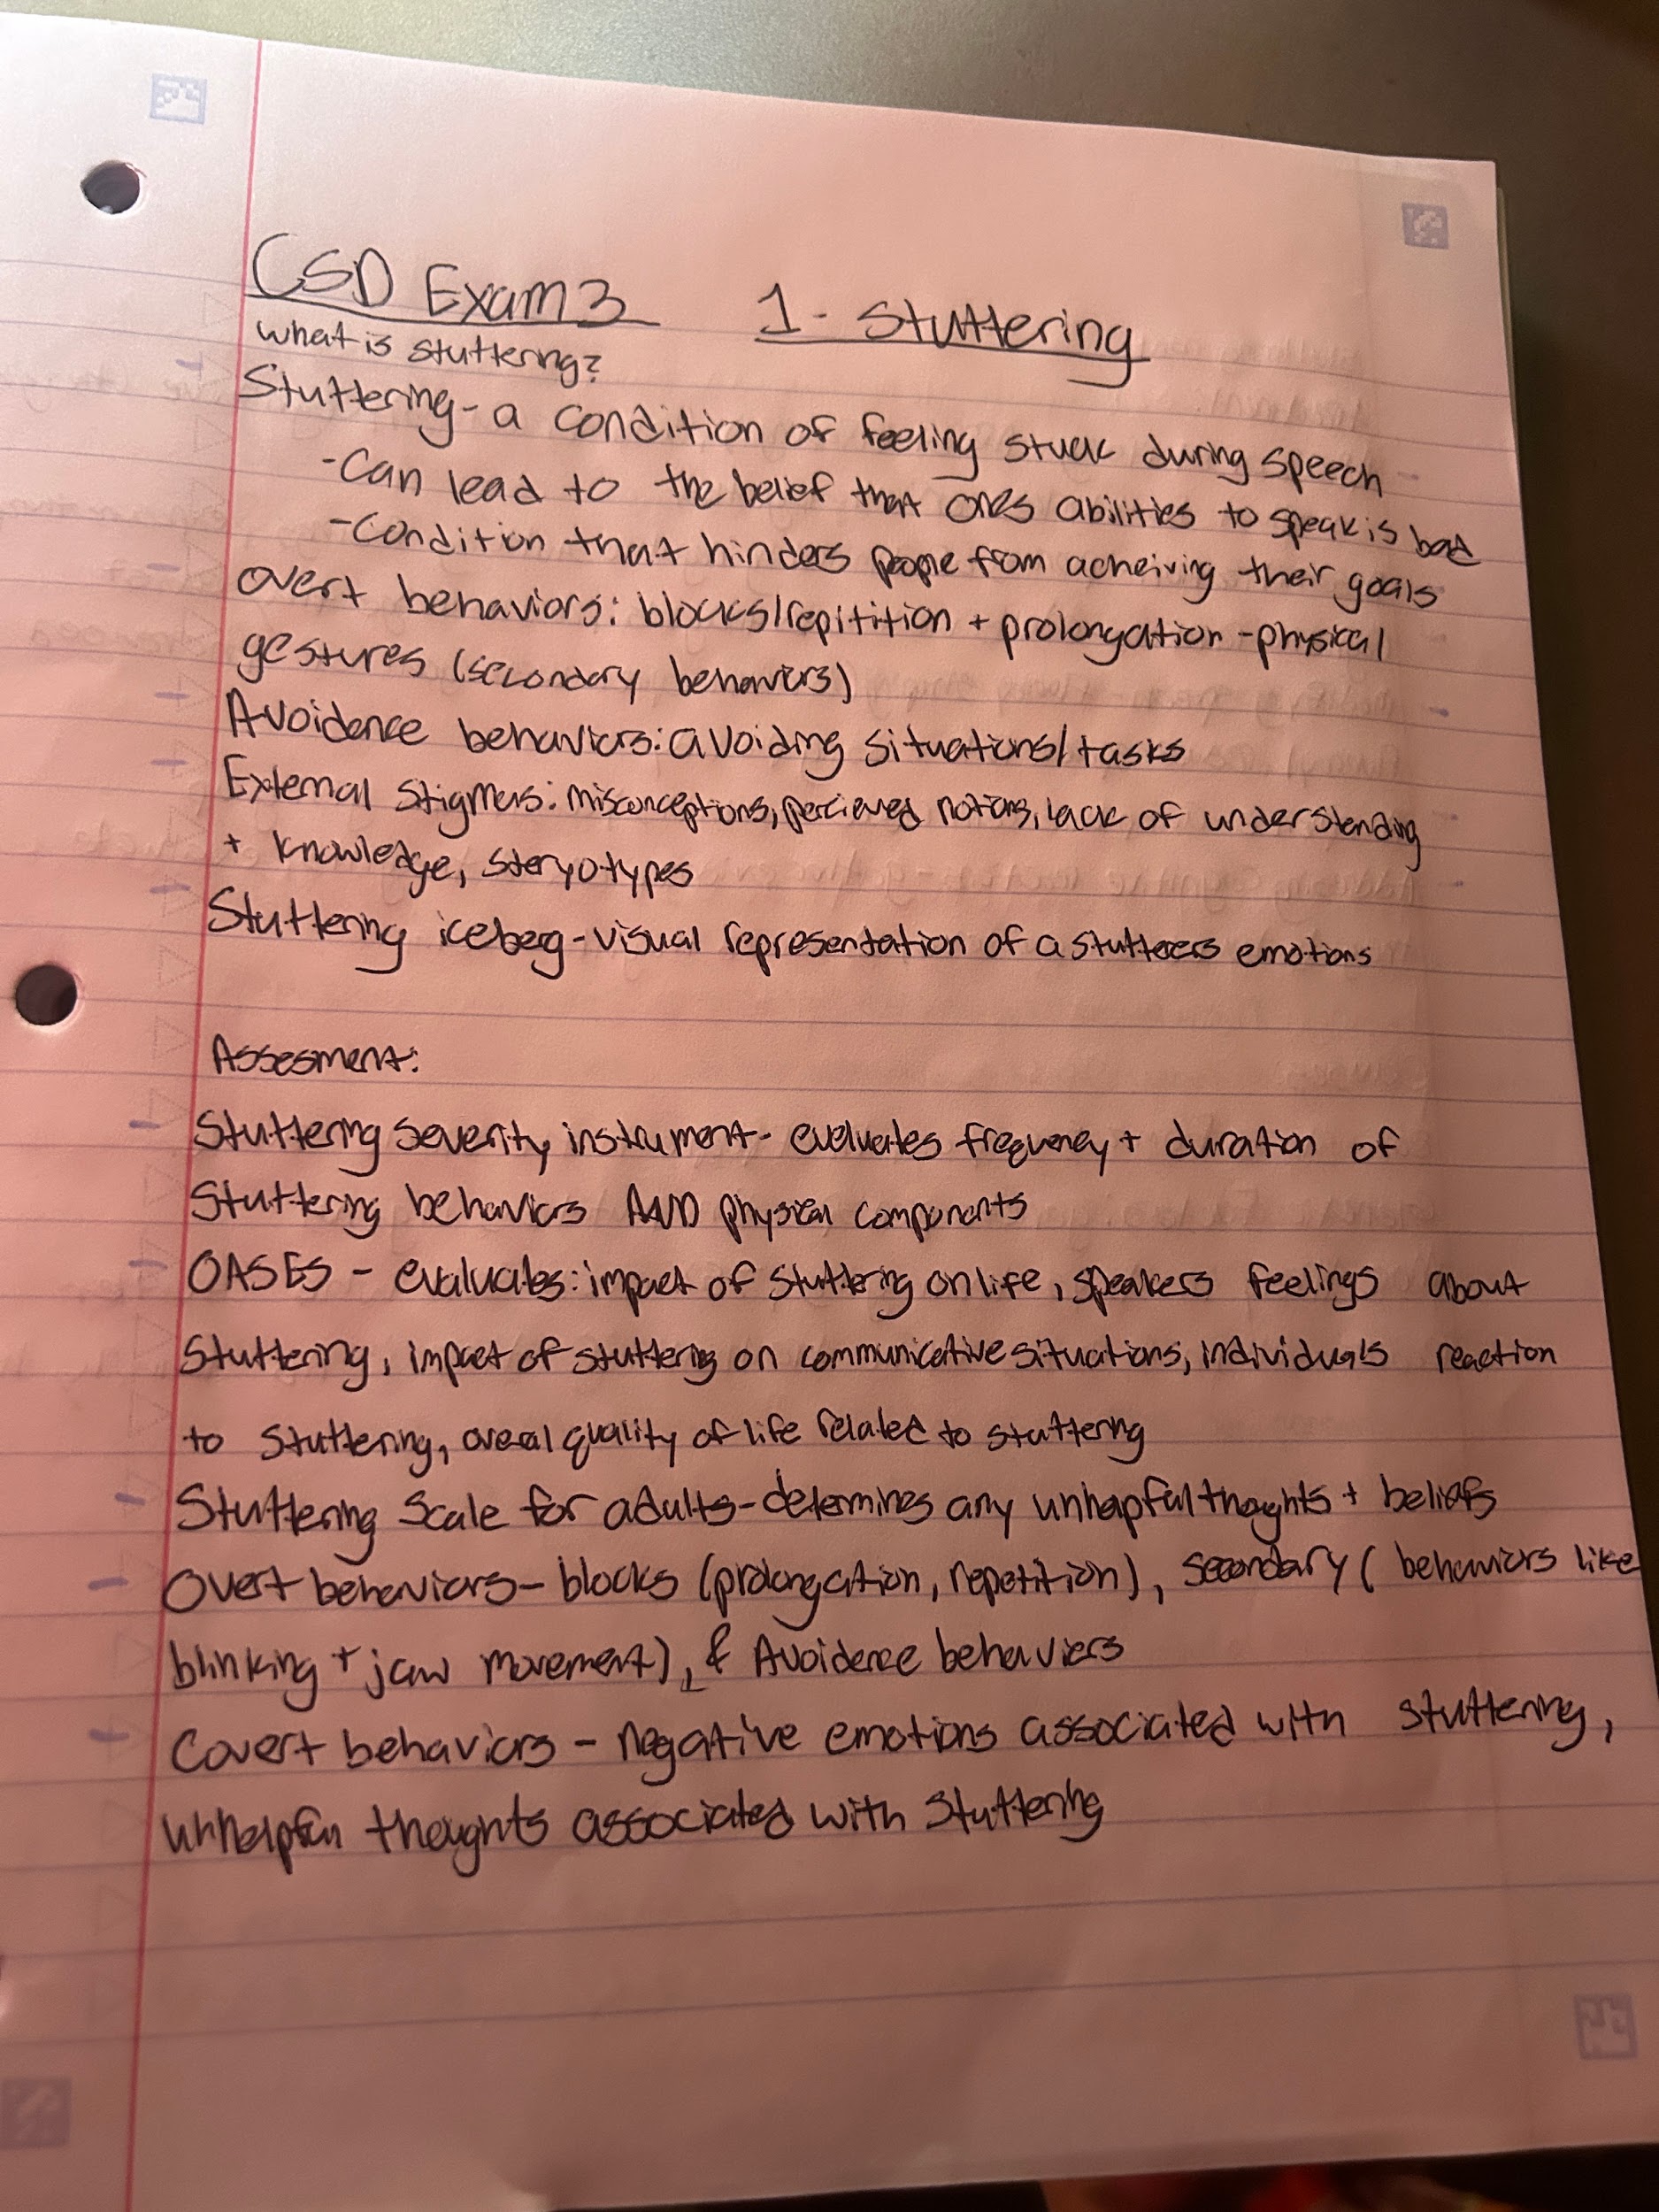 CSD Exam 3 1 - Stuttering
What is stuttering?
Stuttering - a condition of feeling stuck during speech
- Can lead to the belief that ones abilities to speak is bad
- Condition that hinders people from acheiving their goals
overt behaviors: blocks/repitition + prolongation - physical
gestures (secondary behaviors)
Avoidence behaviors: avoiding situations/tasks
External Stigmas: misconceptions, percieved notions, lack of understanding
+ knowledge, steryotypes
Stuttering iceberg - visual representation of a stutterers emotions
Assesment:
Stuttering severity instrument - evaluates frequency + duration of
Stuttering behaviors AND physical components
OASES - evaluates: impact of stuttering on life, speakers feelings about
Stuttering, impact of stuttering on communicative situations, individuals reaction
to stuttering, overal quality of life related to stuttering
Stuttering Scale for adults - determines any unhelpful thoughts + beliefs
Overt behaviors - blocks (prolongation, repetition), secondary (behaviors like
blinking + jaw movement), & Avoidence behaviors
Covert behaviors - negative emotions associated with stuttering,
unhelpful thoughts associated with stuttering